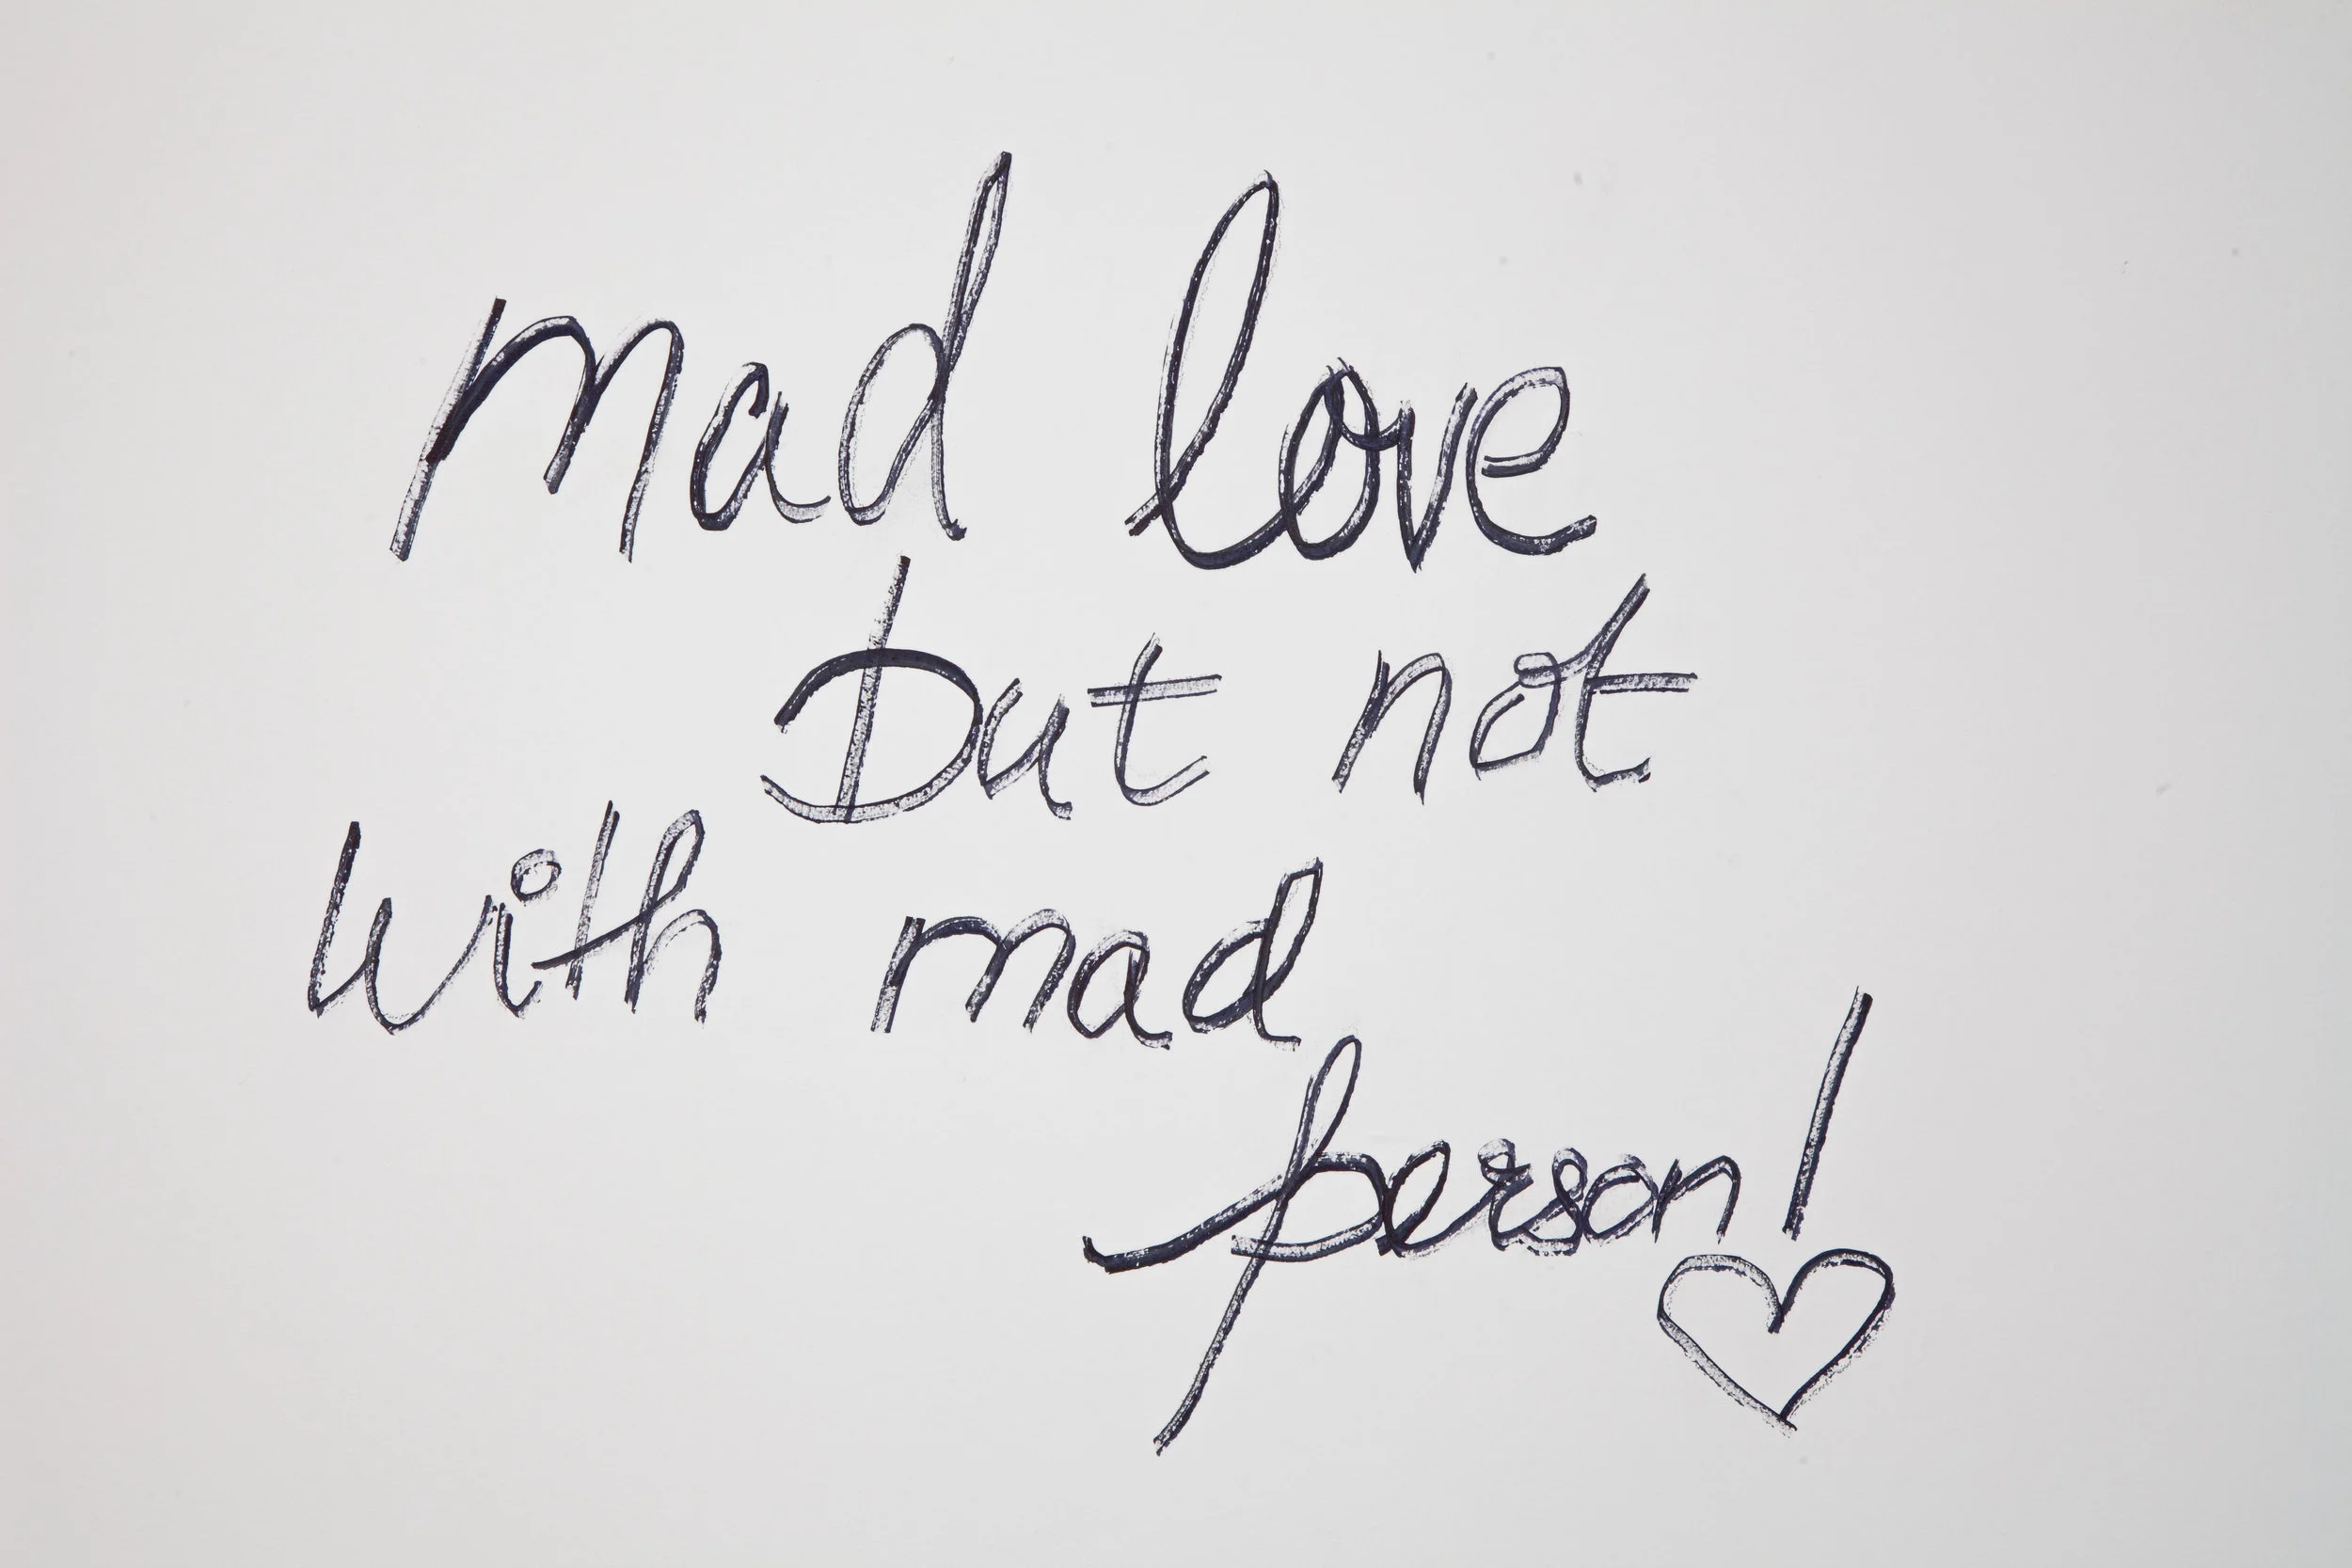 mad love
but not
with mad
person!